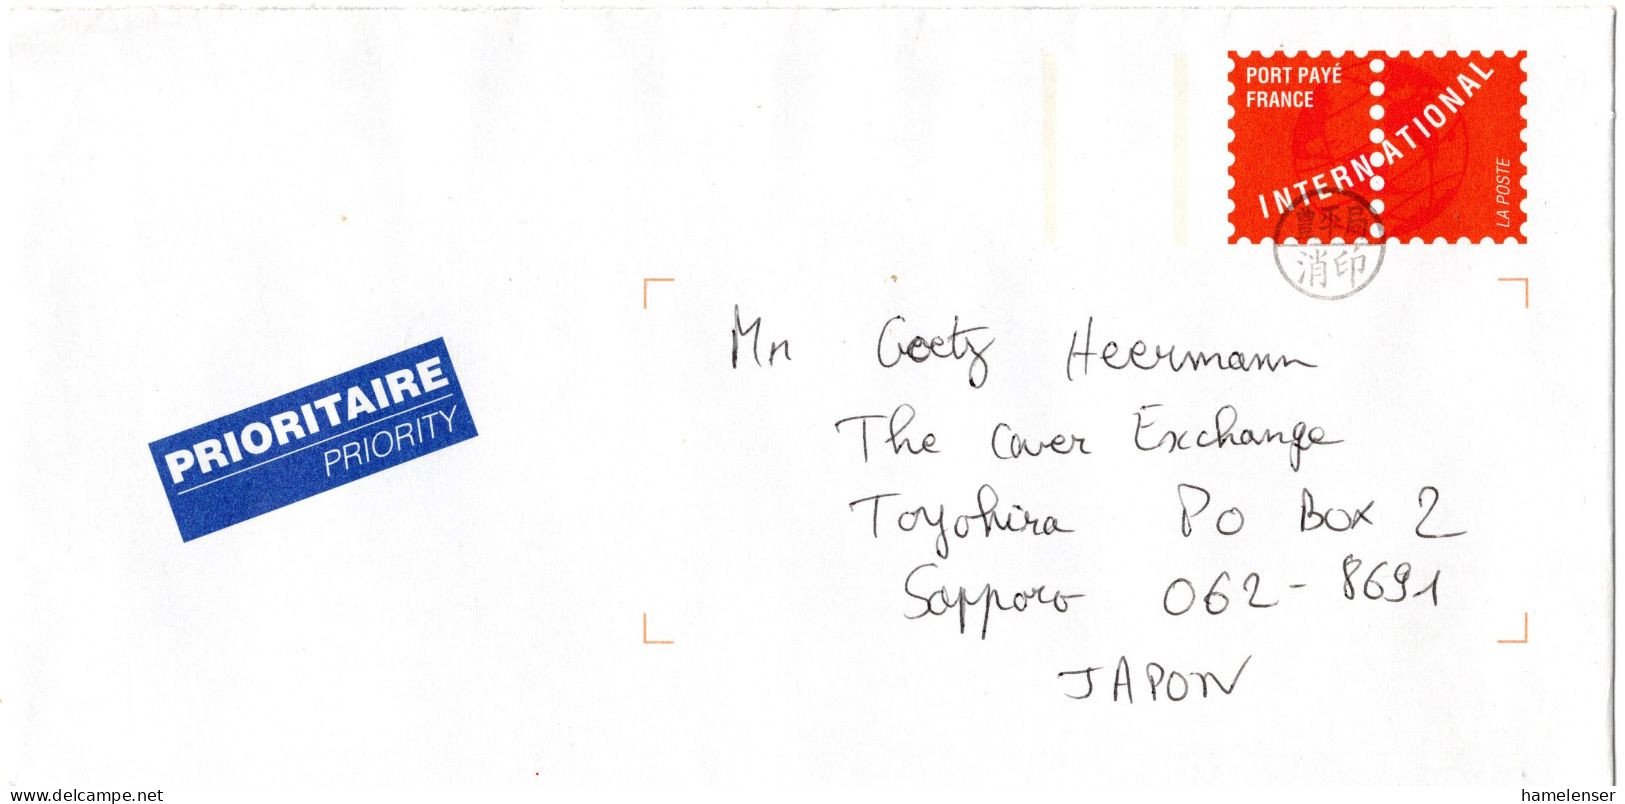 PORT PAYÉ
FRANCE
INTERNATIONAL
LA POSTE
曾平局
消印
Mr Goetz Heermann
The Cover Exchange
Toyohira Po Box 2
Sapporo 062-8691
JAPON
PRIORITAIRE
PRIORITY
www.delcampe.net
hamelenser